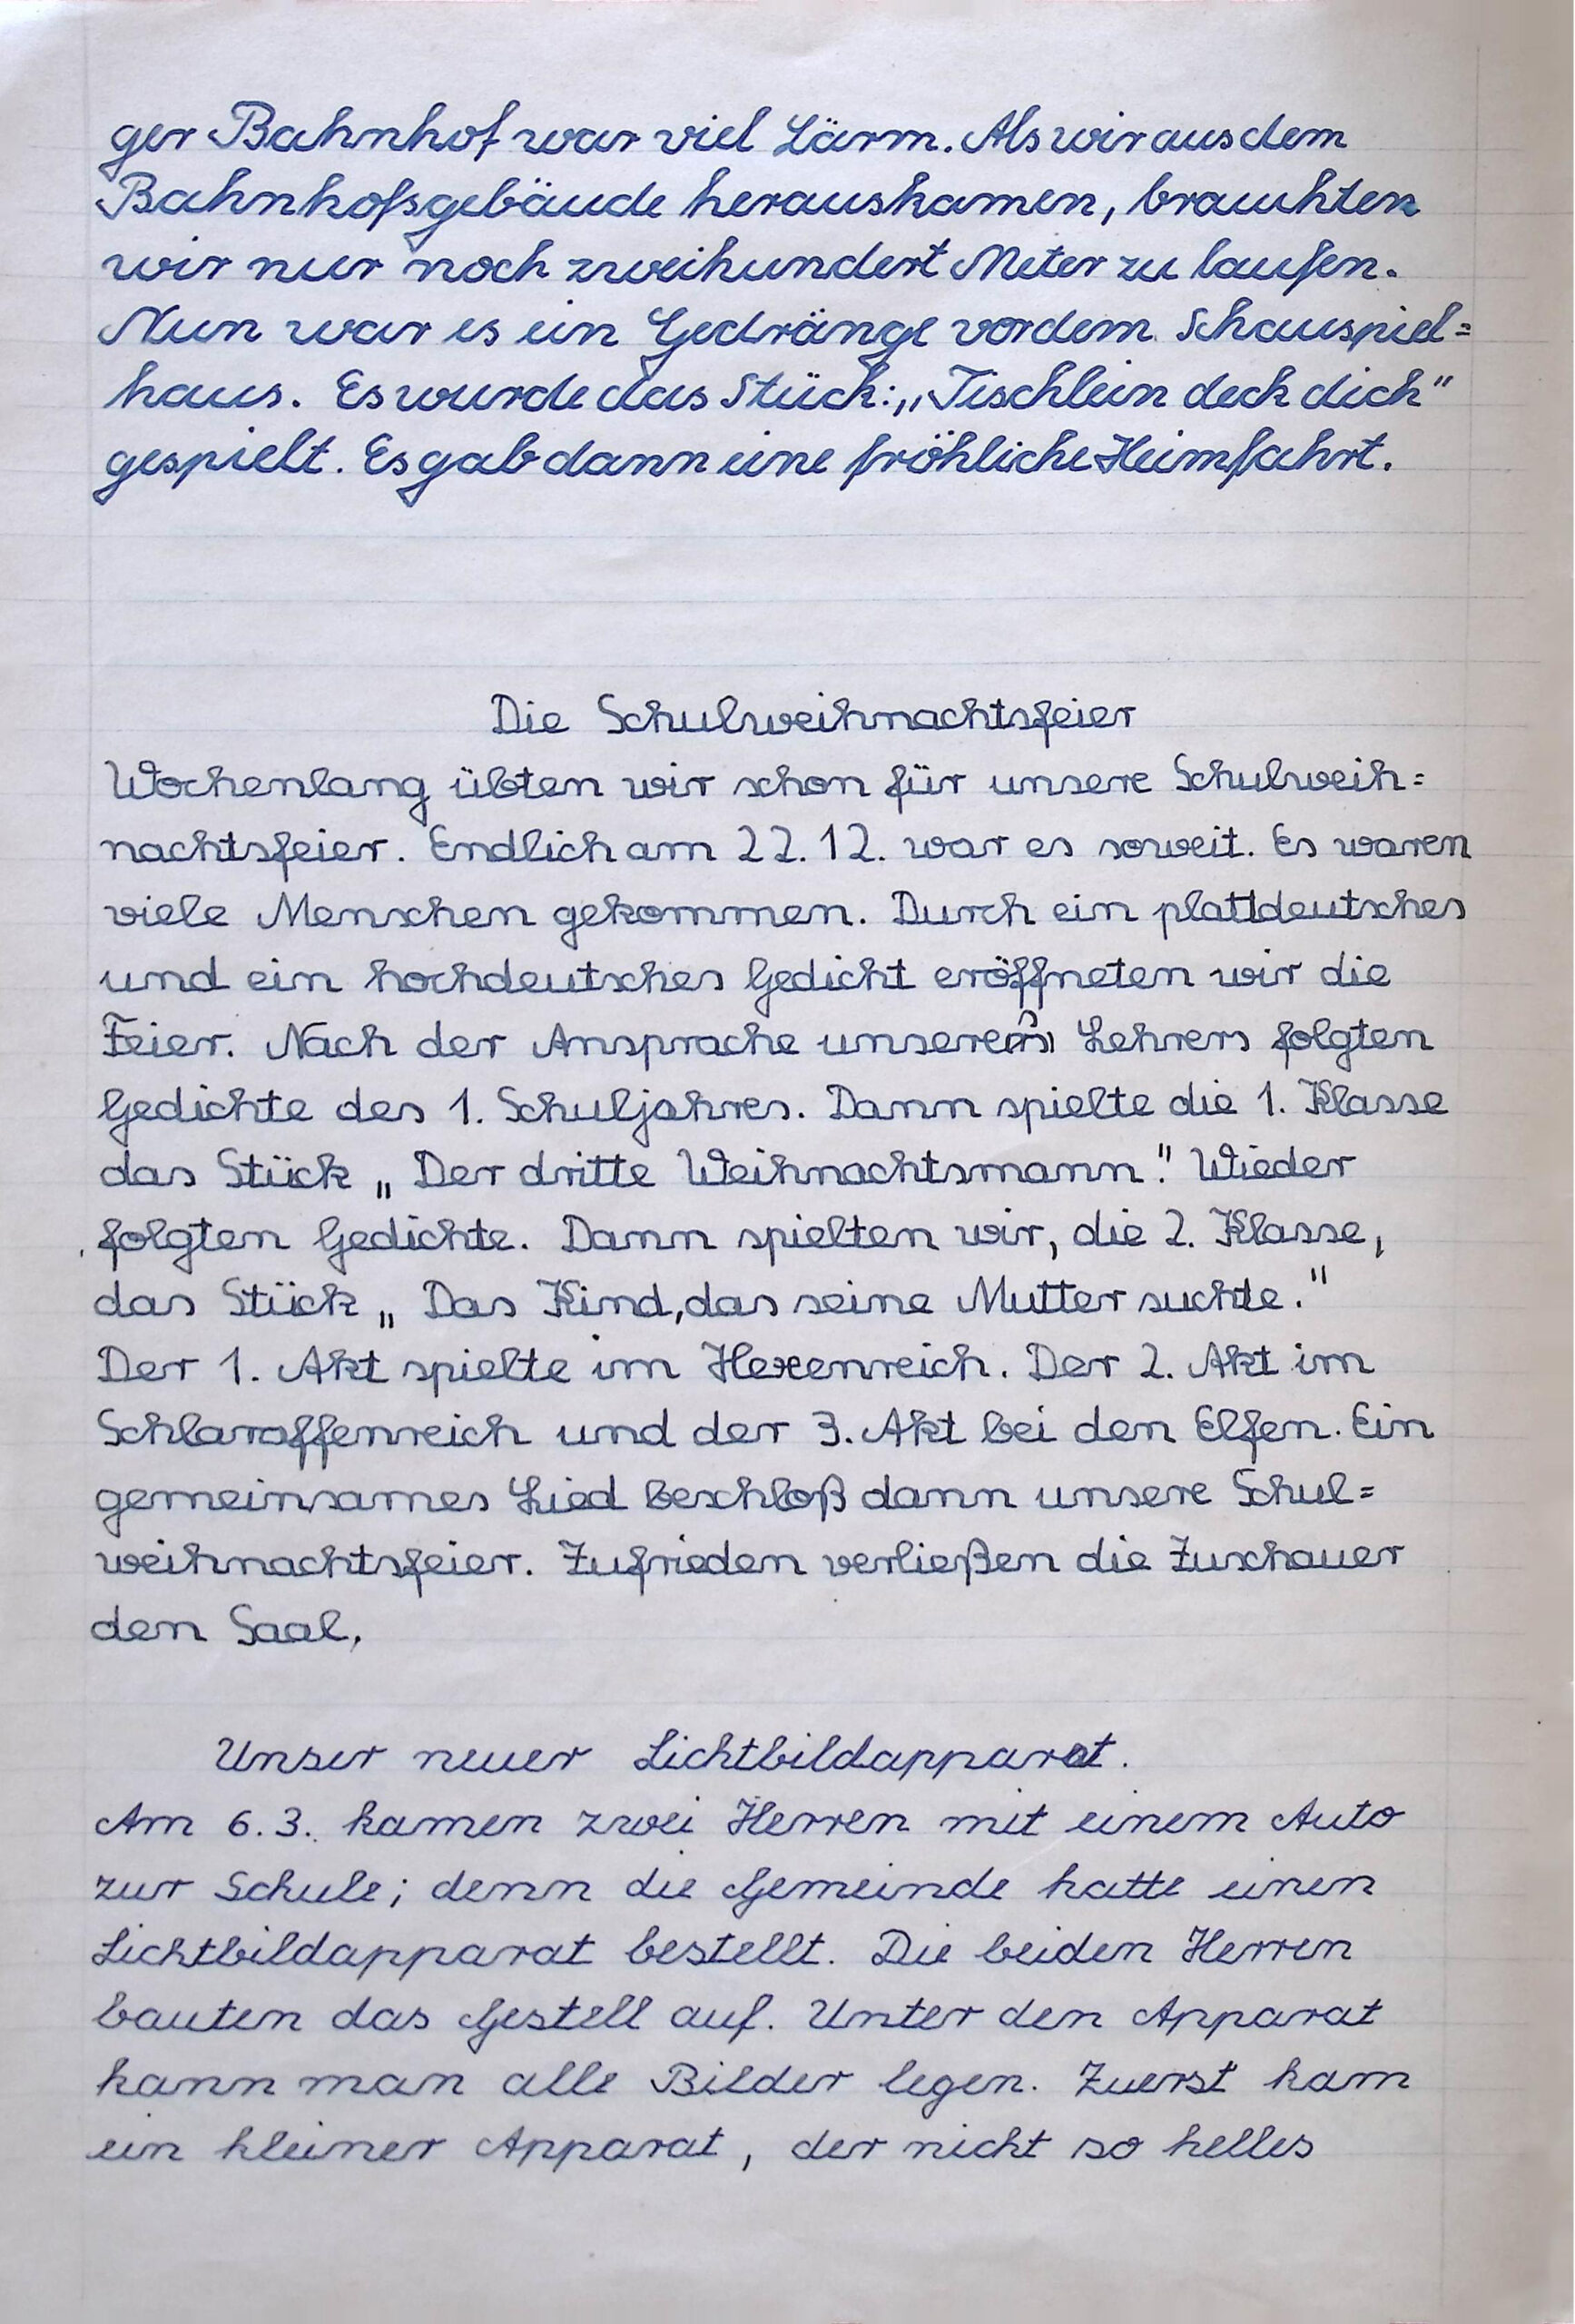 ger Bahnhof war viel Lärm. Als wir aus dem
Bahnhofsgebäude herauskamen, brauchten
wir nur noch zweihundert Meter zu laufen.
Nun war es ein Gedränge vor dem Schauspiel=
haus. Es wurde das Stück: „Tischlein deck dich"
gespielt. Es gab dann eine fröhliche Heimfahrt.
Die Schulweihnachtsfeier
Wochenlang übten wir schon für unsere Schulweih=
nachtsfeier. Endlich am 22. 12. war es soweit. Es waren
viele Menschen gekommen. Durch ein plattdeutsches
und ein hochdeutsches Gedicht eröffneten wir die
Feier. Nach der Ansprache unseres Lehrers folgten
Gedichte des 1. Schuljahres. Dann spielte die 1. Klasse
das Stück „Der dritte Weihnachtsmann." Wieder
folgten Gedichte. Dann spielten wir, die 2. Klasse,
das Stück „Das Kind, das seine Mutter suchte."
Der 1. Akt spielte im Hexenreich. Der 2. Akt im
Schlaraffenreich und der 3. Akt bei den Elfen. Ein
gemeinsames Lied beschloß dann unsere Schul=
weihnachtsfeier. Zufrieden verließen die Zuschauer
den Saal.
Unser neuer Lichtbildapparat.
Am 6. 3. kamen zwei Herren mit einem Auto
zur Schule; denn die Gemeinde hatte einen
Lichtbildapparat bestellt. Die beiden Herren
bauten das Gestell auf. Unter den Apparat
kann man alle Bilder legen. Zuerst kam
ein kleiner Apparat, der nicht so helles